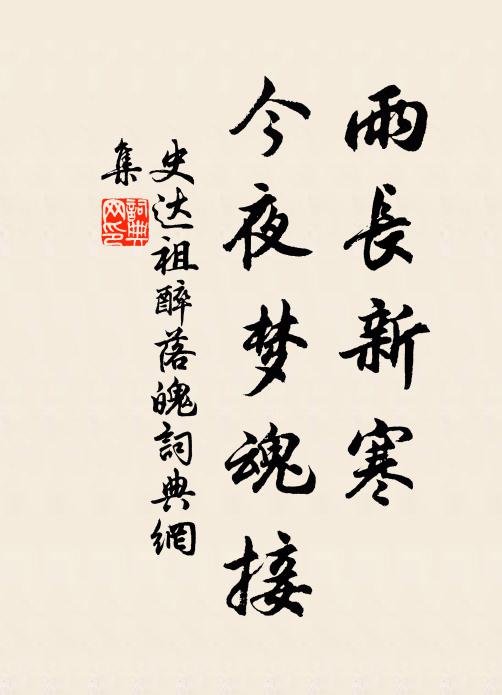 雨長新寒
今夜梦魂接
史达祖醉落魄詞典網
集
詞典
网印